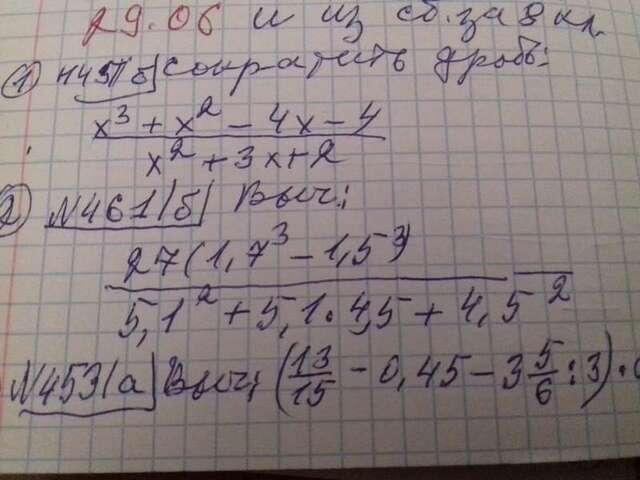 29.06 и из сб. за 8 кл.
① сократить дробь:
x³ + x² - 4x - 4
x² + 3x + 2
② №461(б) Выч:
27(1,7³ - 1,5³)
5,1² + 5,1·4,5 + 4,5²
№453(а) Выч: (13/15 - 0,45 - 3 5/6 : 3) ·